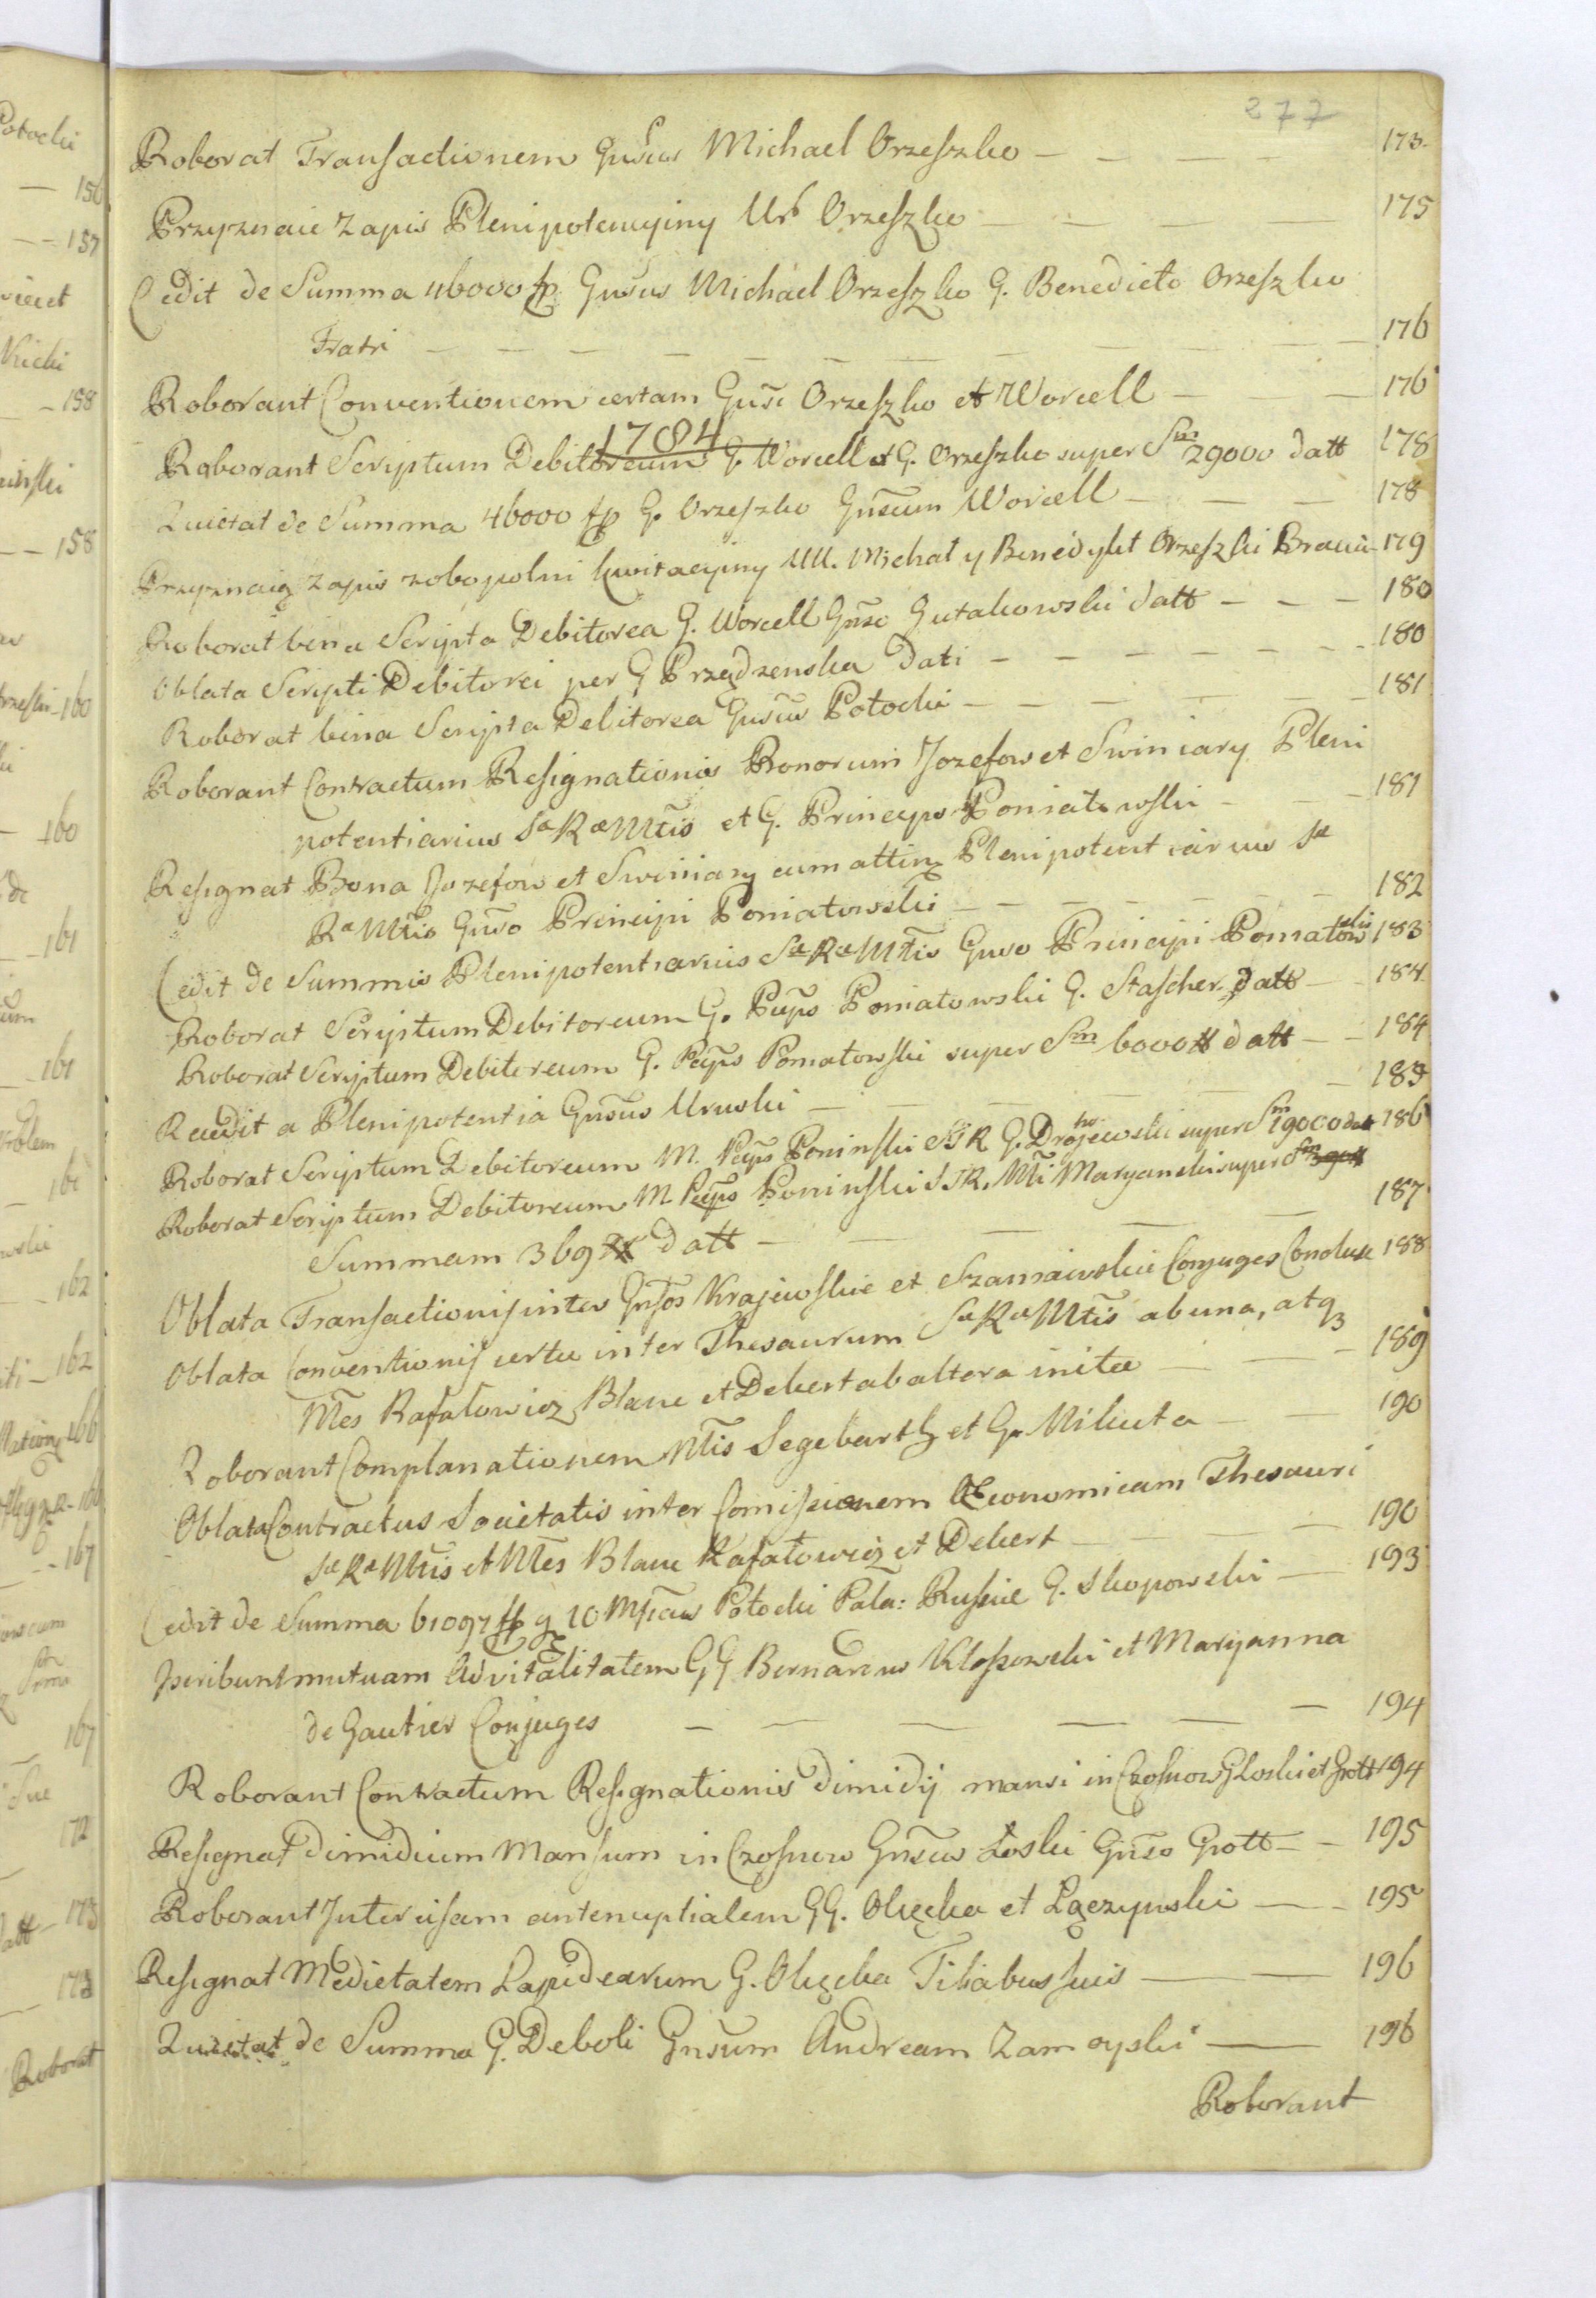 277
Roborat Transactionem Gnsus Michael Orzeszko - - - - 173
Przyznaie Zapis Plenipotencyiny Ur Orzeszko - - - 175
Cedit de Summa 46000 fp Gnsus Michael Orzeszko G. Benedicto Orzeszko
Fratri - - - - - - - - - 176
Roborant Conventionem certam Gnsi Orzeszko et Worcell - - - 176
1784
Roborant Scriptum Debitoreum G. Worcell et G. Orzeszko super Sm 29000 datt 178
Quietat de Summa 46000 fp G. Orzeszko Gnsum Worcell - - - 178
Przyznaią zapis zobopolni kwitacyiny UU. Michał y Benedykt Orzeszki Bracia - 179
Roborat bina Scripta Debitorea G. Worcell Gnso Gutakowski datt - - - 180
Oblata Scripti Debitorei per G Prządzenska dati - - - - - - 180
Roborat bina Scripta Debitorea Gnsus Potocki - - - - - 181
Roborant Contractum Resignationis Bonorum Jozefow et Swiniary Pleni
potentiarius Sæ Ræ Mtis et G. Princeps Poniatowski - - - 181
Resignat Bona Jozefow et Swiniary cum attin Plenipotentiarius Sæ
Ræ Mtis Gnso Principi Poniatowski - - - - - 182
Cedit de Summis Plenipotentiarius Sæ Ræ Mtis Gnso Principi Poniatowski 183
Roborat Scriptum Debitoreum G. Pceps Poniatowski G. Stascher datt - - 184
Roborat Scriptum Debitoreum G. Pceps Poniatowski super Sm 6000 # datt - - 184
Recedit a Plenipotentia Gnsus Uruski - - - - - 185
Roborat Scriptum Debitoreum M. Pceps Poninski G. super Sm 19000 datt 186
Roborat Scriptum Debitoreum M. Pceps Poninski Maryanski super Sm
Summam 369 # datt - - - - - 187
Oblata Transactionis inter Gnsos Krajewskie et Szaniawskie Conjuges Conclusæ 188
Oblata Conventionis certæ inter Thesaurum Sæ Ræ Mtis ab una, atq
Mes Rafałowicz Blanc et Dekert ab altera initæ - - - 189
Roborant Complanationem Mtis Segebarth et G. Mikuta - - 190
Oblata Contractus Societatis inter Comissionem Œconomicam Thesauri
Sæ Ræ Mtis et Mes Blanc Rafałowicz et Dekert - - - - 190
Cedit de Summa 61097 fp g 10 Potocki Pala: Russiæ G. Skopowski - 193
Inscribunt mutuam Advitalitatem GG Bernardus Kłossowski et Maryanna
de Gautier Conjuges - - - - - - 194
Roborant Contractum Resignationis dimidij mansi in Czosnow G Łoski et Grott 194
Resignat dimidium Mansum in Czosnow Gnsus Łoski Gnso Grott - - 195
Roborant Intercisam antenuptialem GG. Olięcka et Łączynski - - 195
Resignat Medietatem Lapidearum G. Olięcka Filiabus suis - - 196
Quietat de Summa G. Deboli Gnsum Andream Zamoyski - 196
Roborant